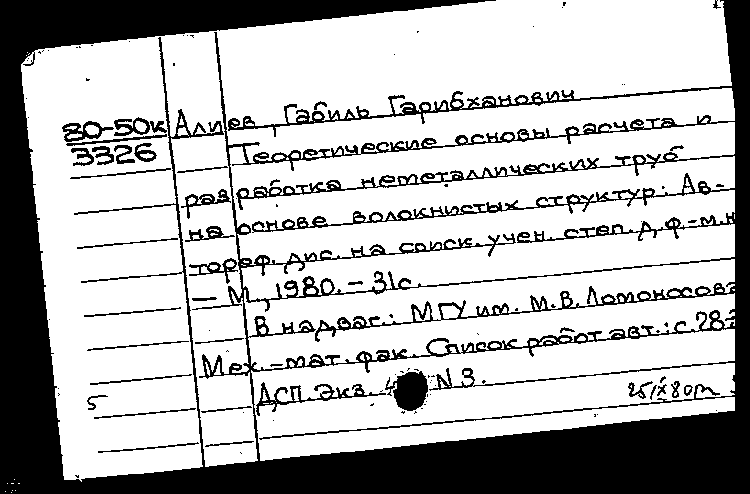 80-50к Алиев, Габиль Гарибханович
3326 Теоретические основы расчета и
разработка неметаллических труб
на основе волокнистых структур: Ав-
тореф. дис. на соиск. учен. степ. д. ф.-м.н
— М., 1980. — 31с.
В надзаг.: МГУ им. М.В. Ломоносова
Мех.-мат. фак. Список работ авт.: с.
ДСП. Экз. N 3.
5